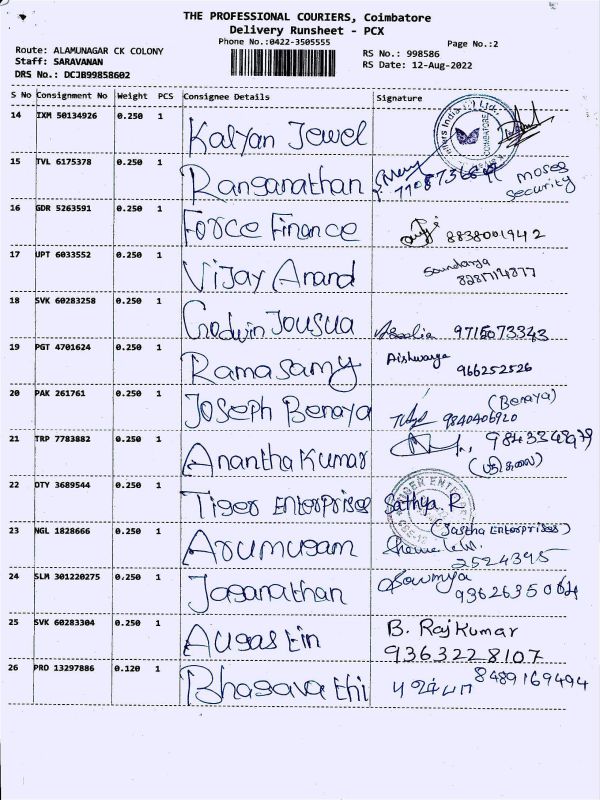 THE PROFESSIONAL COURIERS, Coimbatore
Delivery Runsheet - PCX
Phone No.:0422-3505555
Page No.:2
Route: ALAMUNAGAR CK COLONY
Staff: SARAVANAN
DRS No.: DCJB99858602
RS No.: 998586
RS Date: 12-Aug-2022
S No Consignment No Weight PCS Consignee Details Signature
14 IXM 50134926 0.250 1 Kalyan Jewel
COIMBATORE
15 TVL 6175378 0.250 1 Ranganathan Moses
security
16 GDR 5263591 0.250 1 Force Finance 8838001942
17 UPT 6033552 0.250 1 Vijay Anand Soundarya
18 SVK 60283258 0.250 1 Godwin Jousua 9715073343
19 PGT 4701624 0.250 1 Ramasamy Aishwarya
966252526
20 PAK 261761 0.250 1 Joseph Benaya (Benaya)
9840406920
21 TRP 7783882 0.250 1 Anantha Kumar
22 OTY 3689544 0.250 1 Tiger Enterprises Sathya R
(Jastha Enterprises)
23 NGL 1828666 0.250 1 Arumugam
2524395
24 SLM 301220275 0.250 1 Jaganathan Sowmya
25 SVK 60283304 0.250 1 Augastin B. Rajkumar
9363228107
26 PRD 13297886 0.120 1 Bhagavathi 8489169494